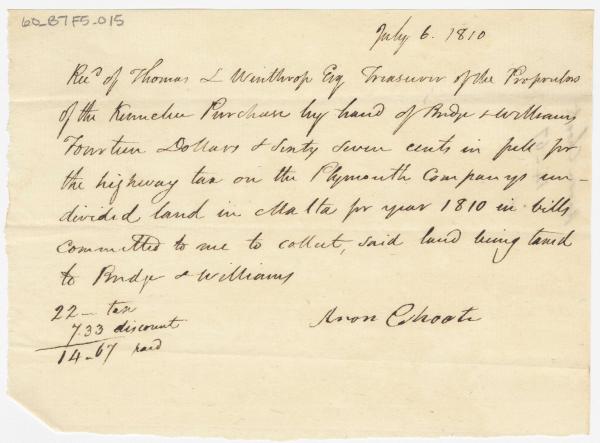 60_B7F5_015
July 6. 1810
Recd of Thomas L Winthrop Esq Treasurer of the Proprietors
of the Kennebec Purchase by hand of Bridge & Williams
Fourteen Dollars & Sixty Seven cents in full for
the highway tax on the Plymouth Companys un-
divided land in Malta for year 1810 in bills
committed to me to collect, said land being taxed
to Bridge & Williams
22 — tax
7.33 discount
14-67 paid
Aron Choate